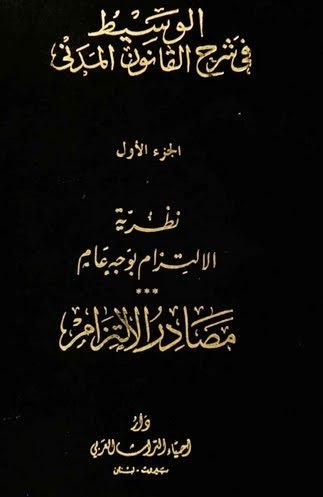 الوسيط
في شرح القانون المدني
الجزء الأول
نظرية
الالتزام بوجه عام
***
مصادر الالتزام
دار
احياء التراث العربي
بيروت - لبنان